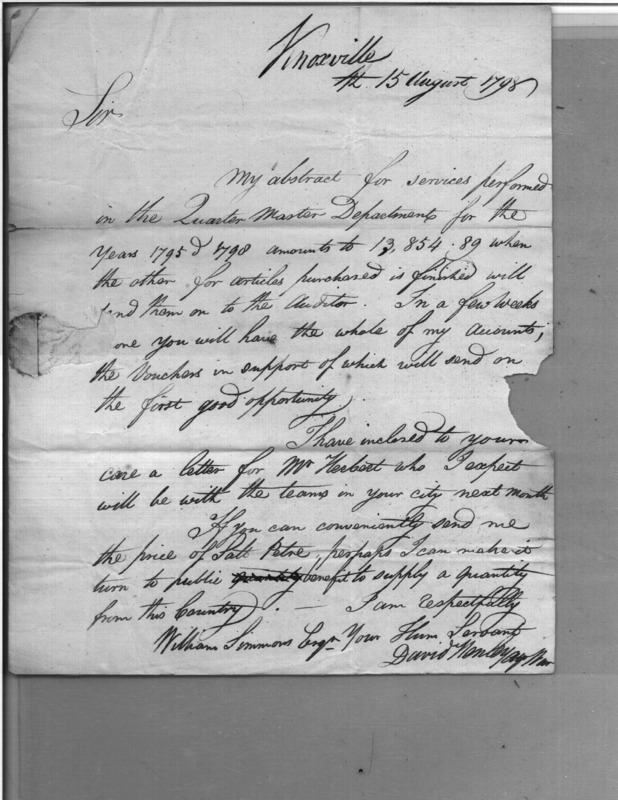 Knoxville
th. 15 August 1798
Sir
My abstract for services performed
in the Quarter Master Department for the
Years 1795 d 1798 amounts to 13,854.89 when
the other for articles purchased is finished will
nd them on to the Auditor. In a few weeks
one you will have the whole of my Accounts;
the Vouchers in support of which will send on
the first good opportunity.
I have inclosed to yours
care a letter for Mr Herbert who I expect
will be with the teams in your city next month
If you can conveniently send me
the price of Salt Petre, perhaps I can make it
turn to public quantity benefit to supply a quantity
from this Country. — I am respectfully
William Simmons Esqr Your Hum Servant
David Henley Ag War